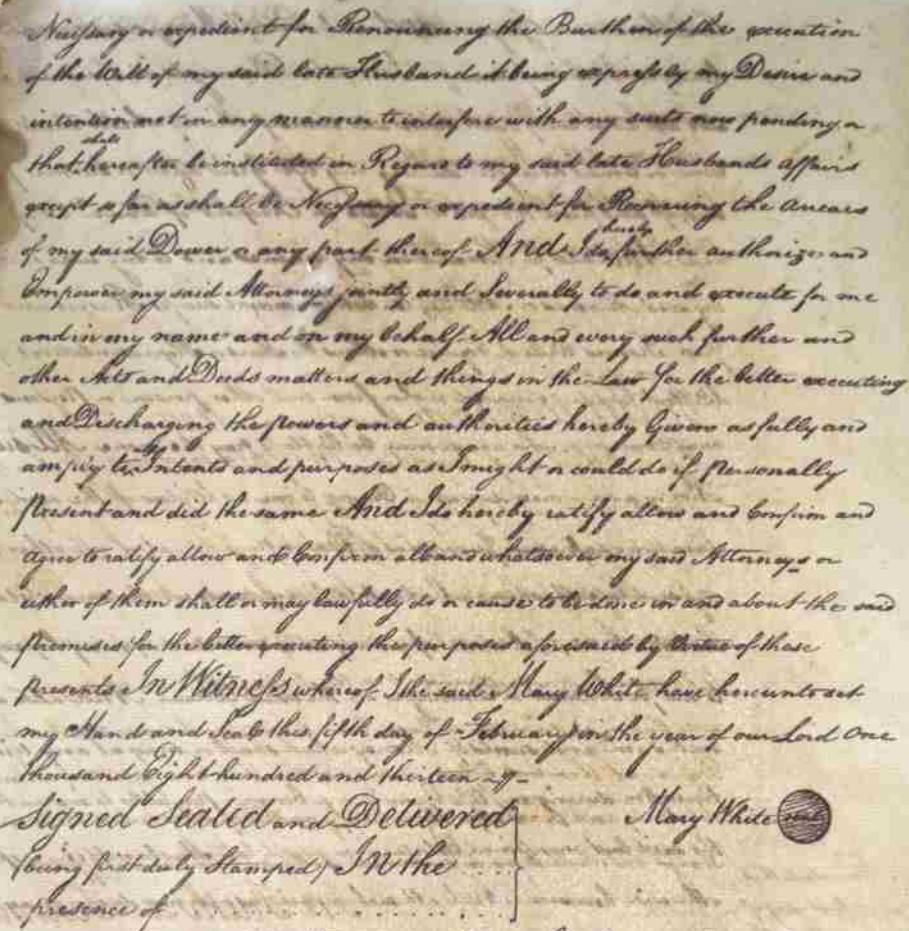 Necessary or expedient for Renouncing the Burthen of the execution
of the Will of my said late Husband it being expressly my Desire and
intention not in any manner to interfere with any suits now pending or
that shall hereafter be instituted in Regard to my said late Husbands affairs
except so far as shall be Necessary or expedient for Recovering the Arrears
of my said Dower or any part thereof And I do hereby further authorize and
Empower my said Attorneys jointly and Severally to do and execute for me
and in my name and on my behalf All and every such further and
other Acts and Deeds matters and things in the Law for the better executing
and Discharging the powers and authorities hereby Given as fully and
amply to all Intents and purposes as I might or could do if personally
Present and did the same And I do hereby ratify allow and Confirm and
agree to ratify allow and Confirm all and whatsoever my said Attorneys or
either of them shall or may lawfully do or cause to be done in and about the said
Premises for the better executing the purposes aforesaid by Virtue of these
presents In Witness whereof I the said Mary White have hereunto set
my Hand and Seal this fifth day of February in the year of our Lord One
thousand Eight hundred and thirteen
Signed Sealed and Delivered Mary White seal
(being first duly Stamped) In the
presence of